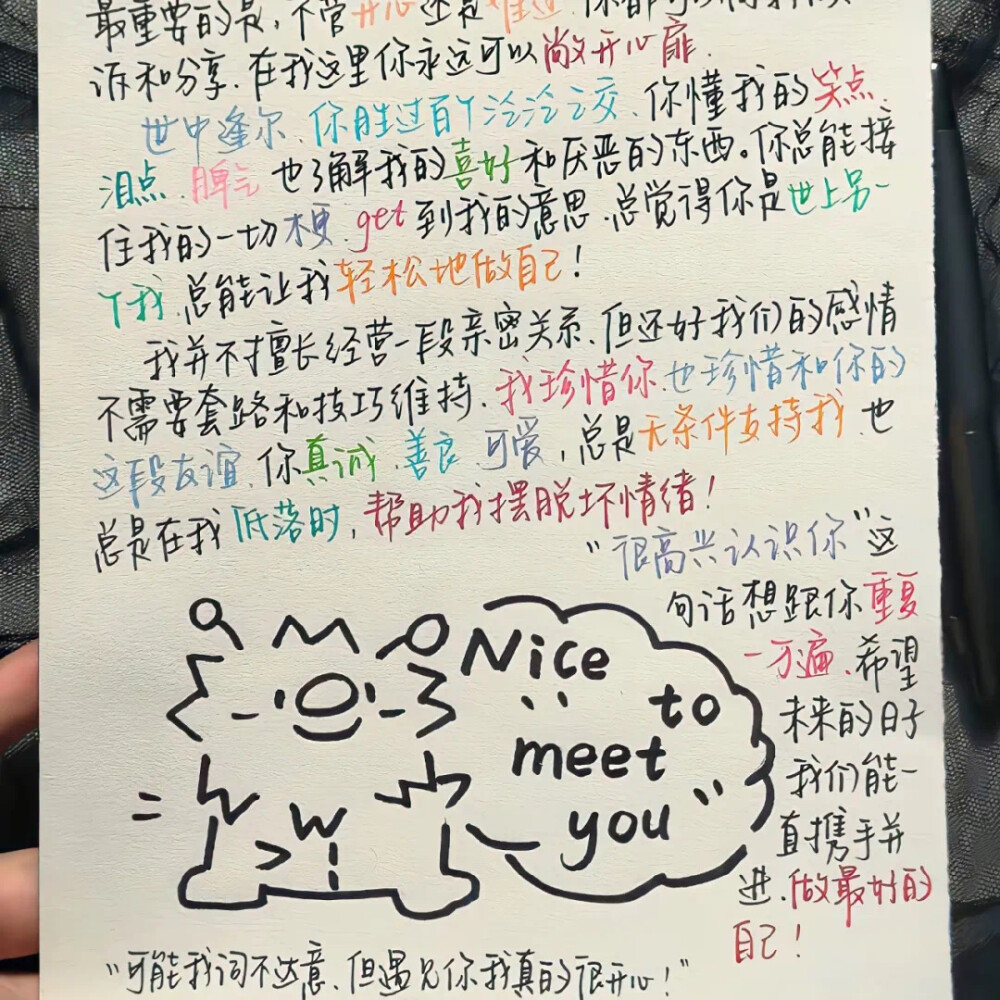 最重要的是,不管开心还是难过.你都可以
诉和分享.在我这里你永远可以敞开心扉.
世中逢尔.你胜过百个泛泛之交.你懂我的笑点
泪点.脾气也了解我的喜好和厌恶的东西。你总能接
住我的一切梗.get到我的意思.总觉得你是世上另一
个我.总能让我轻松地做自己!
我并不擅长经营一段亲密关系.但还好我们的感情
不需要套路和技巧维持.我珍惜你.也珍惜和你的
这段友谊.你真诚.善良.可爱,总是无条件支持我.也
总是在我低落时,帮助我摆脱坏情绪!
"很高兴认识你"这
句话想跟你重复
一万遍.希望
未来的日子
我们能一
直携手并
进.做最好的
自己!
Nice
to
meet
you
"可能我词不达意.但遇见你我真的很开心!"